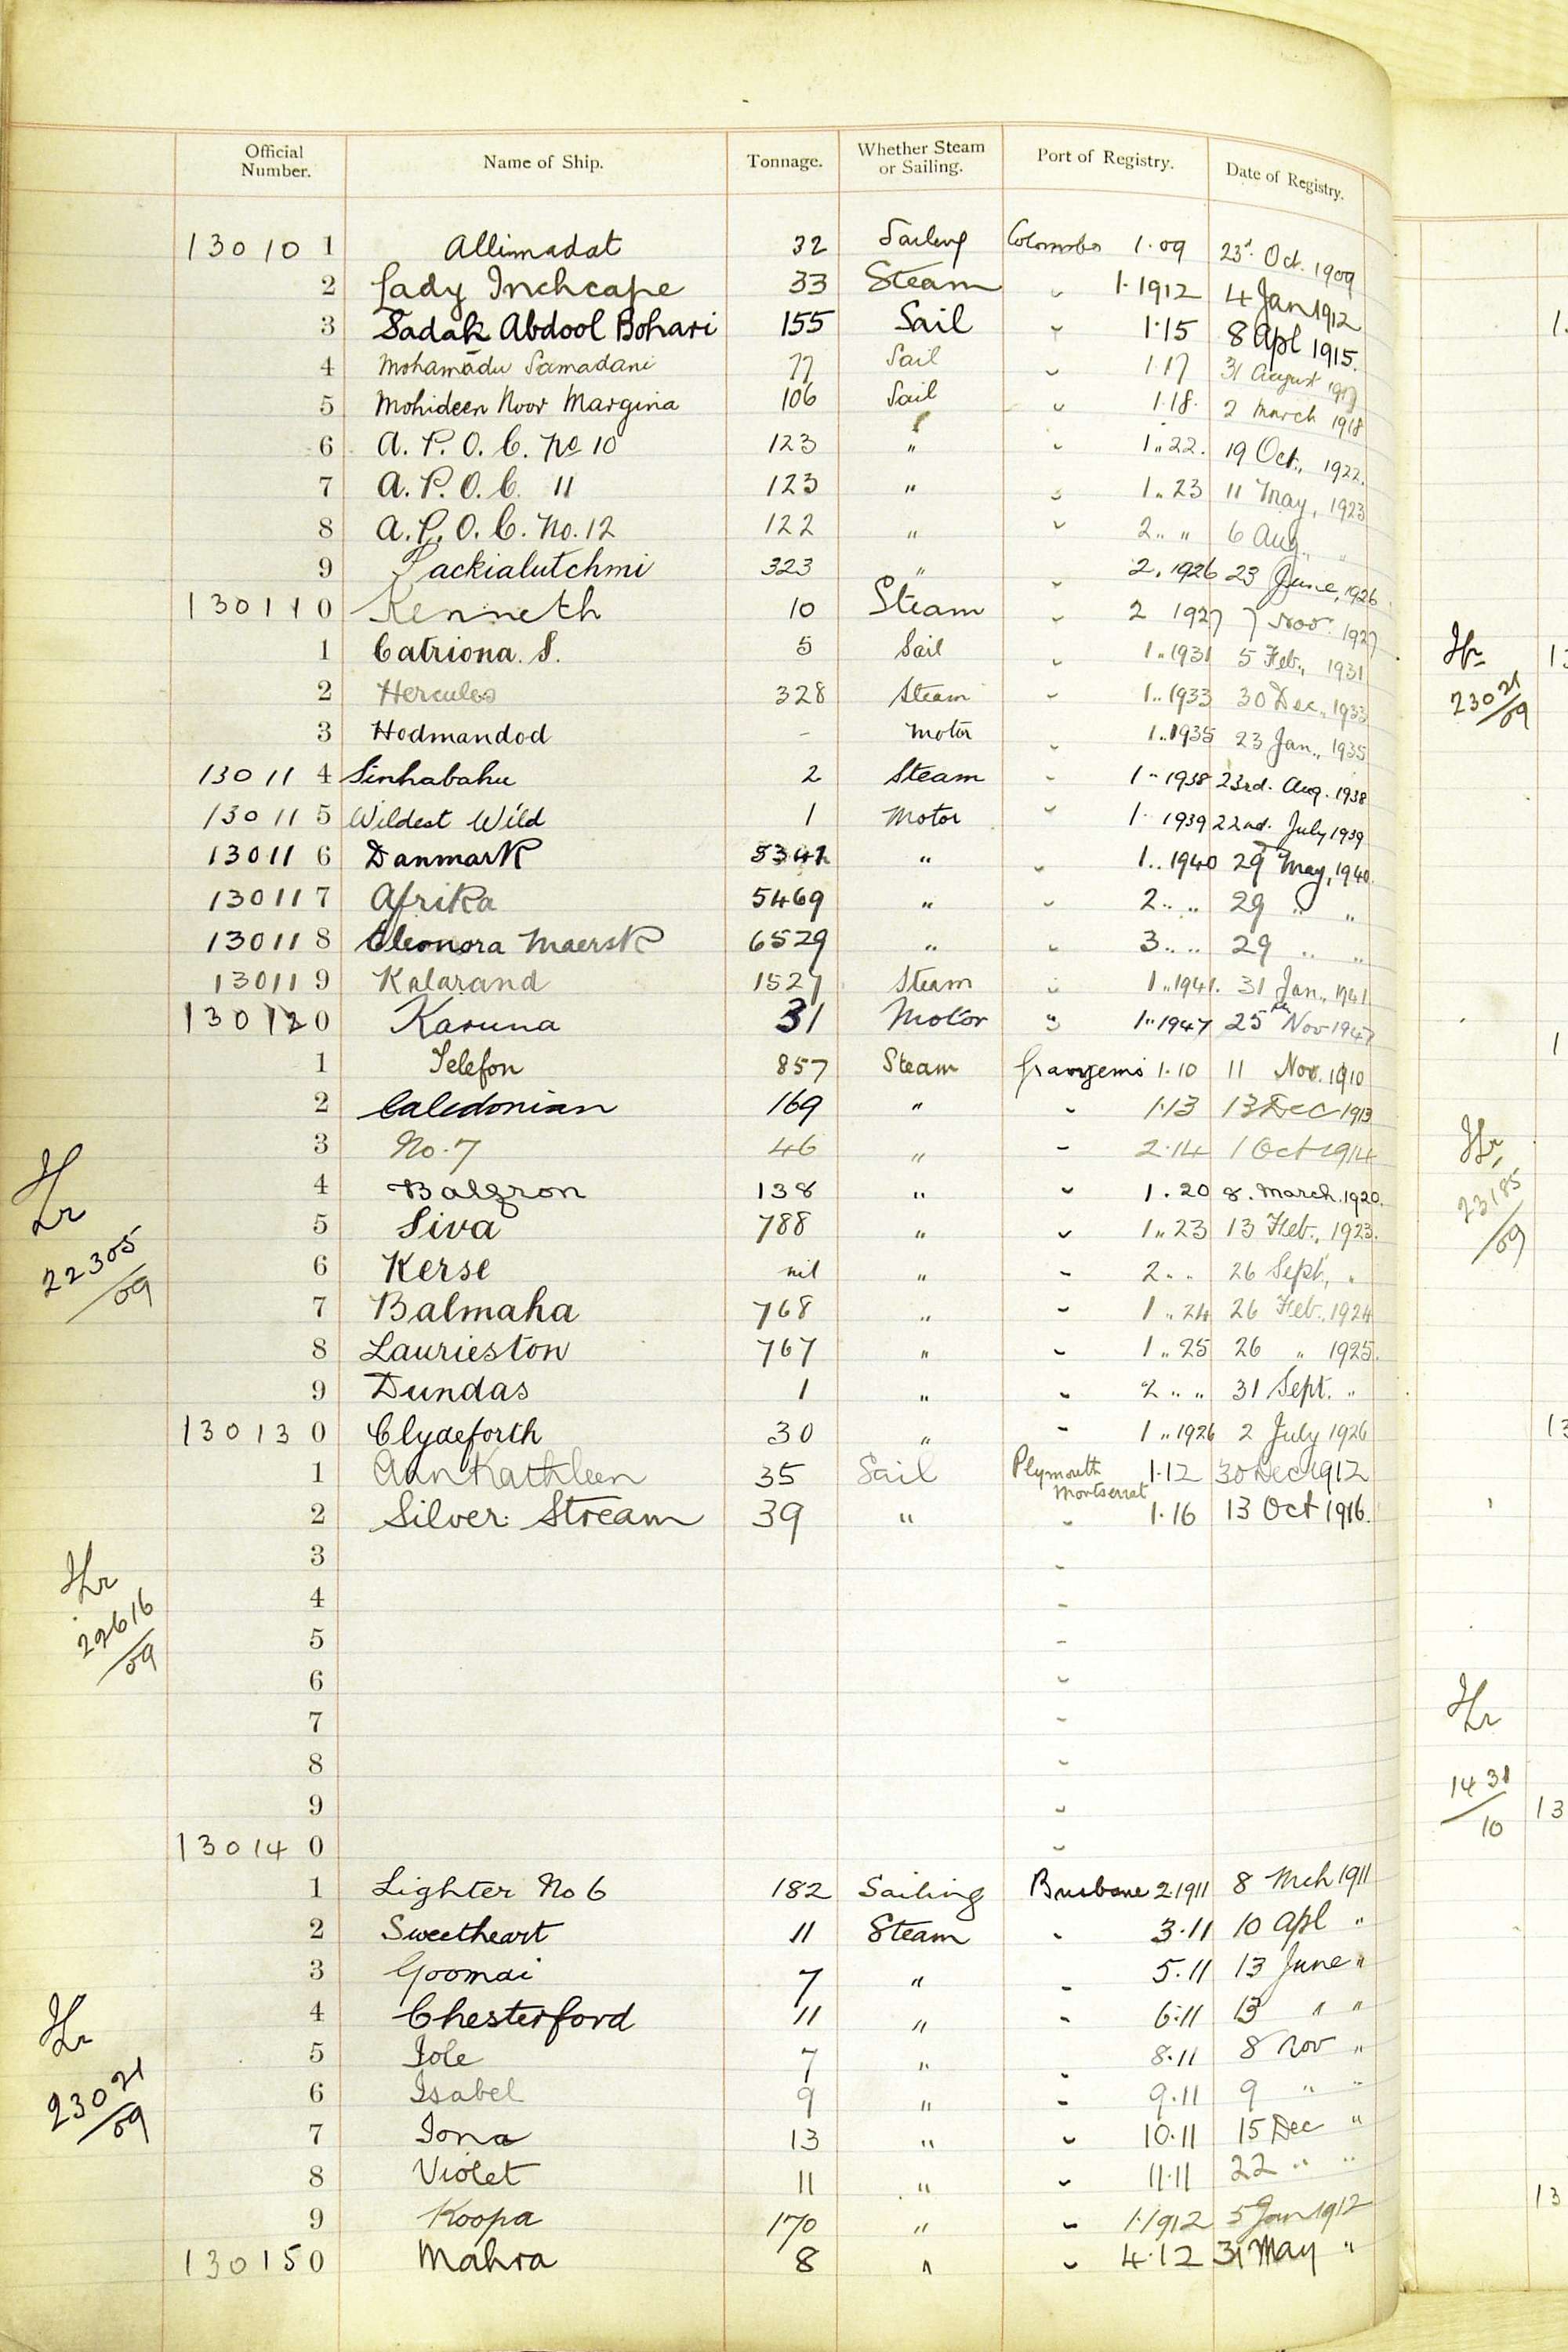 Official Number. Name of Ship. Tonnage. Whether Steam or Sailing. Port of Registry. Date of Registry.
13010 1 Allimadat 32 Sailing Colombo 1.09 23rd. Oct. 1909
2 Lady Inchcape 33 Steam " 1.1912 4 Jan 1912
3 Sadak Abdool Bohari 155 Sail " 1.15 8 Apl 1915.
4 Mohamadu Samadani 77 Sail " 1.17 31 August 1917
5 Mohideen Noor Margina 106 Sail " 1.18. 2 March 1918
6 A. P. O. C. No 10 123 " " 1..22. 19 Oct., 1922.
7 A. P. O. C. 11 123 " " 1..23 11 May, 1923
8 A. P. O. C. No. 12 122 " " 2.. " 6 Aug., "
9 Lackialutchmi 323 " " 2. 1926 23 June, 1926
13011 0 Kenneth 10 Steam " 2 1927 7 Nov. 1927
1 Catriona. S. 5 Sail " 1..1931 5 Feb., 1931
2 Hercules 328 Steam " 1..1933 30 Dec., 1933
3 Hodmandod - Motor " 1..1935 23 Jan., 1935
13011 4 Sinhabahu 2 Steam " 1..1938 23rd. Aug. 1938
13011 5 Wildest Wild 1 Motor " 1. 1939 22nd. July 1939
13011 6 Danmark " " 1..1940 29 May, 1940.
13011 7 Afrika 5469 " " 2.. .. 29 " "
13011 8 Eleonora Maersk 6529 " " 3.. .. 29 .. "
13011 9 Kalarand 1527 Steam " 1..1941. 31 Jan., 1941
13012 0 Karuna 31 Motor " 1..1947 25th Nov 1947
1 Telefon 857 Steam Grangemo 1.10 11 Nov. 1910
2 Caledonian 169 " " 1.13 13 Dec 1913
3 No. 7 46 " " 2.14 1 Oct 1914
4 Balgron 138 " " 1.20 8. March. 1920.
5 Siva 788 " " 1..23 13 Feb., 1923.
6 Kerse nil " " 2.. 26 Sept., "
7 Balmaha 768 " " 1..24 26 Feb., 1924
8 Laurieston 767 " " 1..25 26 " 1925.
9 Dundas 1 " " 2.. " 31 Sept. "
13013 0 Clydeforth 30 " " 1..1926 2 July 1926
1 Ann Kathleen 35 Sail Plymouth Montserrat 1.12 30 Dec 1912
2 Silver Stream 39 " " 1.16 13 Oct 1916.
3 "
4 "
5 "
6 "
7 "
8 "
9 "
13014 0 "
1 Lighter No 6 182 Sailing Brisbane 2.1911 8 Mch 1911
2 Sweetheart 11 Steam " 3.11 10 Apl "
3 Goomai 7 " " 5.11 13 June "
4 Chesterford 11 " " 6.11 13 " "
5 Iole 7 " " 8.11 8 Nov "
6 Isabel 9 " " 9.11 9 " "
7 Iona 13 " " 10.11 15 Dec "
8 Violet 11 " " 11.11 22 " "
9 Koopa 170 " " 1.1912 5 Jan 1912
13015 0 Mahra 8 " " 4.12 31 May "
22305/09
22616/09
23021/09
23021/09
23185/09
1431/10
13
13
13